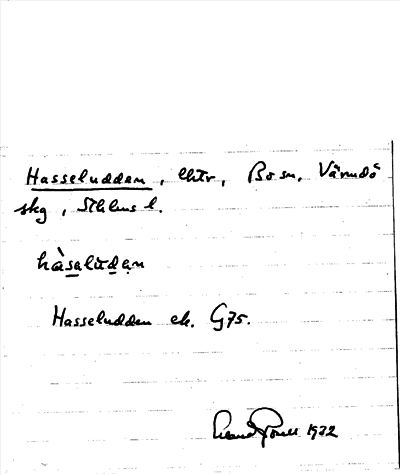 Hasseludden, lhtr, Bo sn, Värmdö
skg, Sthlms l.
hàsalùdan
Hasseludden ek. G75.
1932